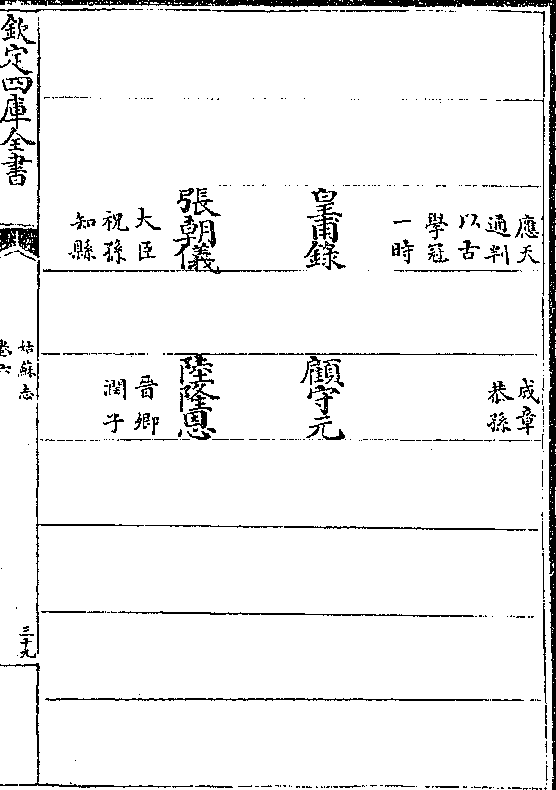 應天
通判
以古
學冠
一時
皇甫錄
張朝儀
大臣
祝孫
知縣
成章
恭孫
顧守元
陸隆恩
晉卿
潤子
欽定四庫全書
姑蘇志
卷六
三十九